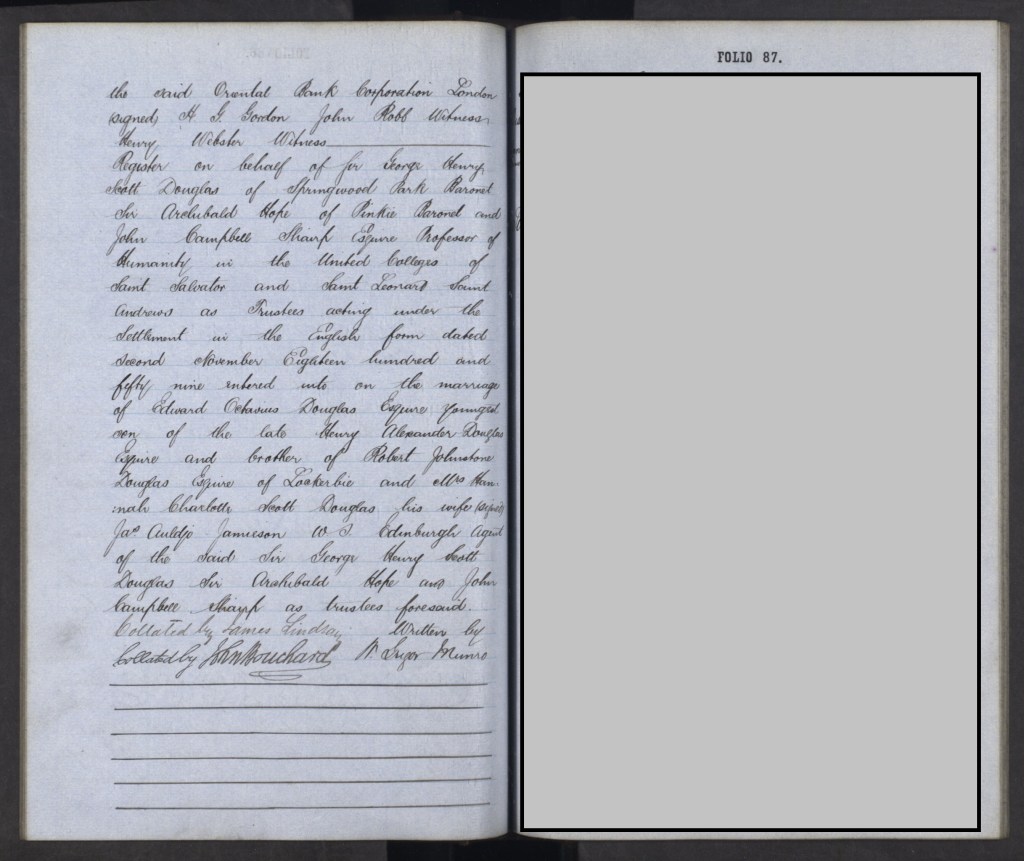 the said Oriental Bank Corporation London
(signed) H. G. Gordon John Robb Witness,
Henry Webster Witness
Register on behalf of Sir George Henry
Scott Douglas of Springwood Park Baronet
Sir Archibald Hope of Pinkie Baronet and
John Campbell Shairp Esquire Professor of
Humanity in the United Colleges of
Saint Salvator and Saint Leonard Saint
Andrews as Trustees acting under the
Settlement in the English form dated
second November Eighteen hundred and
fifty nine entered into on the marriage
of Edward Octavius Douglas Esquire youngest
son of the late Henry Alexander Douglas
Esquire and brother of Robert Johnstone
Douglas Esquire of Lockerbie and Mrs Han-
:nah Charlotte Scott Douglas his wife (signed)
Jas. Auldjo Jamieson W.S. Edinburgh Agent
of the said Sir George Henry Scott
Douglas Sir Archibald Hope and John
Campbell Shairp as trustees foresaid.
Collated by James Lindsay Written by
Collated by John Bouchard W. Munro
FOLIO 87.